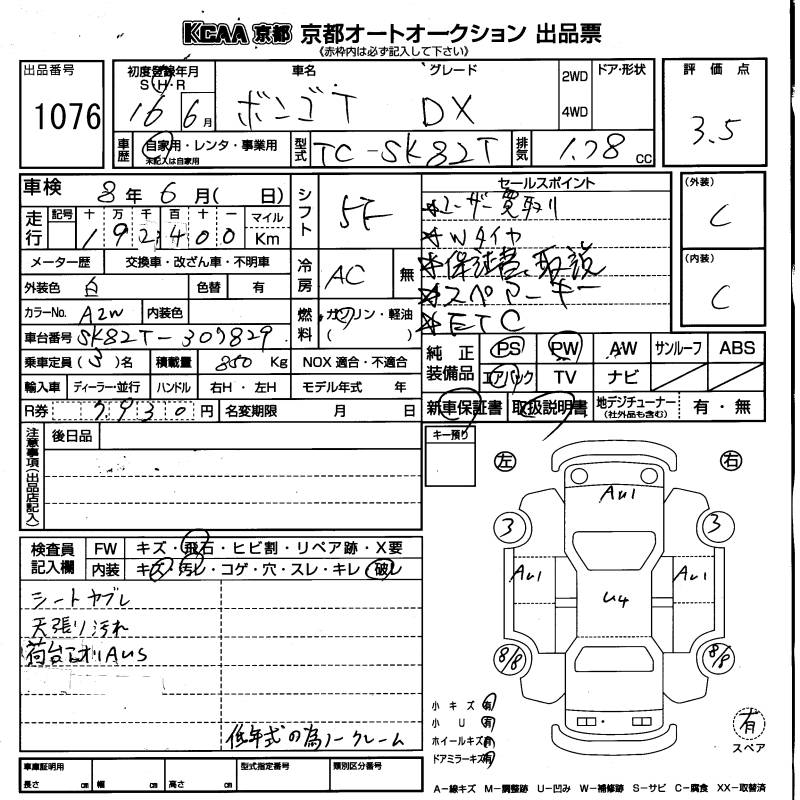 KCAA 京都 京都オートオークション 出品票
《赤枠内は必ず記入して下さい》
出品番号 1076
初度登録年月 S・H・R 16 6月
車名 ボンゴT
グレード DX
2WD 4WD
ドア・形状
評価点 3.5
車歴 自家用・レンタ・事業用 未記入は自家用
型式 TC-SK82T
排気 1.78 cc
車検 8年6月(日)
シフト 5F
セールスポイント
★ユーザー買取り
★Wタイヤ
★保証書、取説
★スペアーキー
★ETC
(外装) C
(内装) C
走行 記号 十万千百十一 マイル Km
192400
メーター歴 交換車・改ざん車・不明車
冷房 AC 無
外装色 白 色替 有
カラーNo. A2W 内装色
燃料 ガソリン・軽油 ( )
車台番号 SK82T-307829
乗車定員 (3)名 積載量 850 Kg NOX 適合・不適合
輸入車 ディーラー・並行 ハンドル 右H・左H モデル年式 年
R券 7930円 名変期限 月 日
純正装備品 PS PW AW サンルーフ ABS
エアバック TV ナビ
新車保証書 取扱説明書 地デジチューナー (社外品も含む) 有・無
注意事項(出品店記入) 後日品
キー預り
左 右
AU1
3 3
AU1 AU1
U4
8/8 8/8
検査員記入欄 FW キズ・飛石・ヒビ割・リペア跡・X要
内装 キズ・汚レ・コゲ・穴・スレ・キレ・破レ
シートヤブレ
天張り汚れ
荷台アオリAUS
低年式の為ノークレーム
小キズ 有
小U 有
ホイールキズ 有
ドアミラーキズ 有
有 スペア
車庫証明用 長さ cm 幅 cm 高さ cm
型式指定番号 類別区分番号
A-線キズ M-調整跡 U-凹み W-補修跡 S-サビ C-腐食 XX-取替済